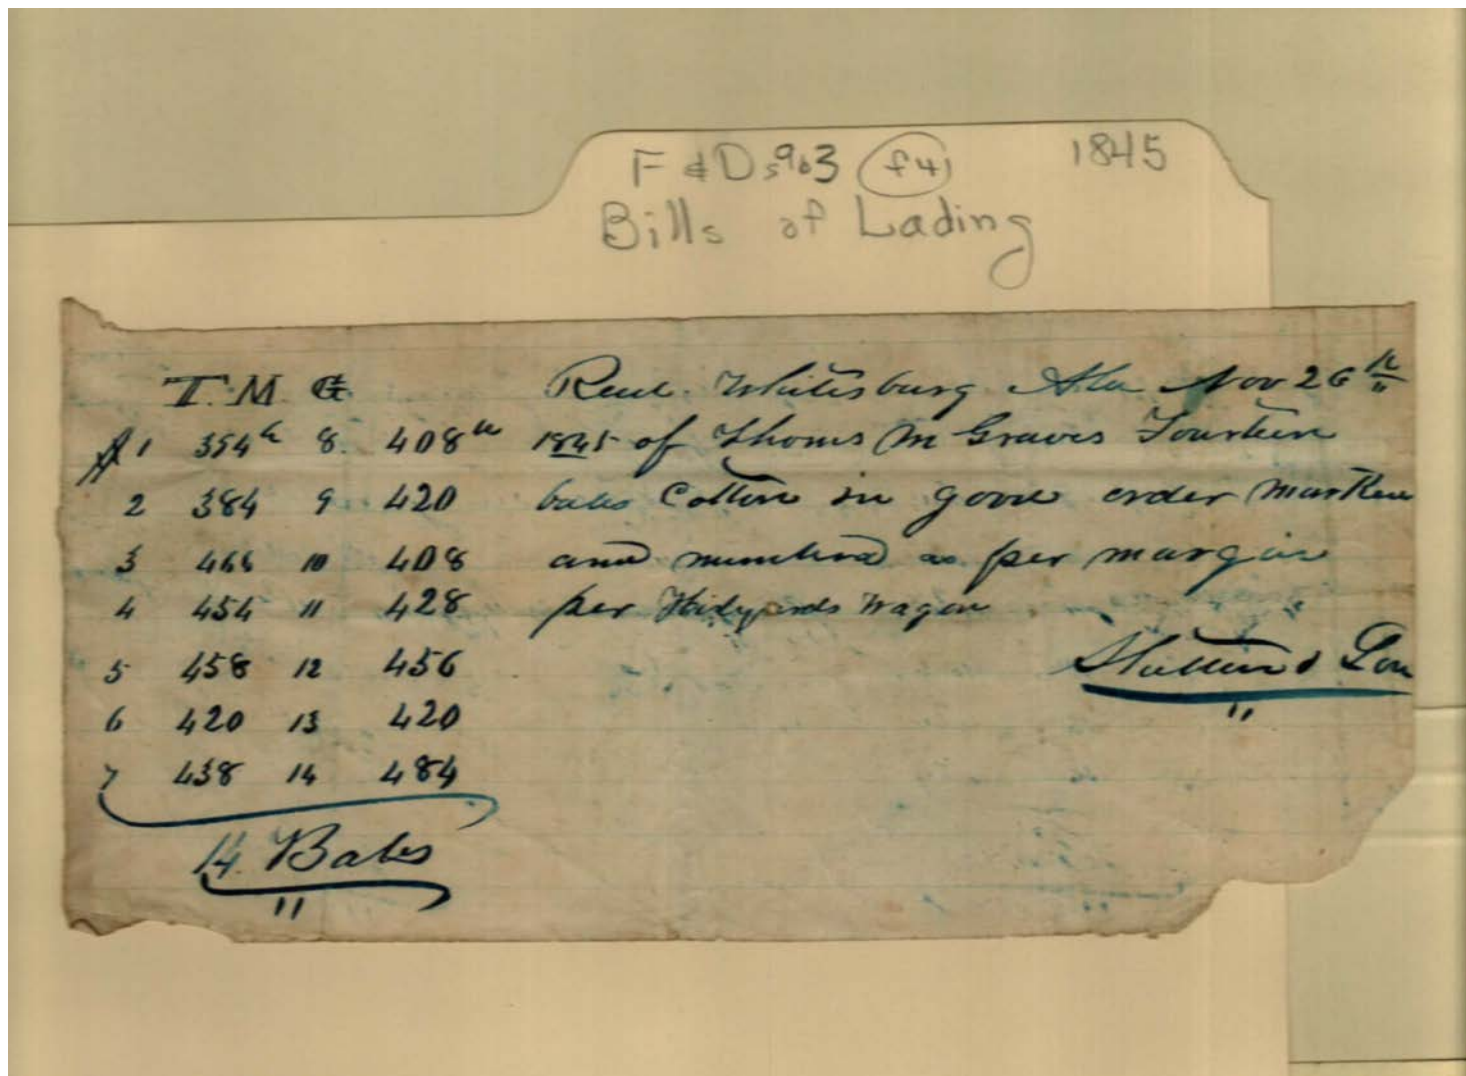 F & D s963 f41 1845
Bills of Lading
T. M. G.
# 1 354 lb 8. 408 lb
2 384 9 420
3 466 10 408
4 454 11 428
5 458 12 456
6 420 13 420
7 438 14 484
14. Bales
Recd. Whitesburg Ala Nov 26th
1845 of Thoms M Graves Fourteen
bales Cotton in good order marked
and numbered as per margin
per wagon